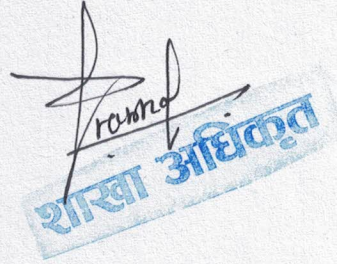 Pramod
शाखा अधिकृत